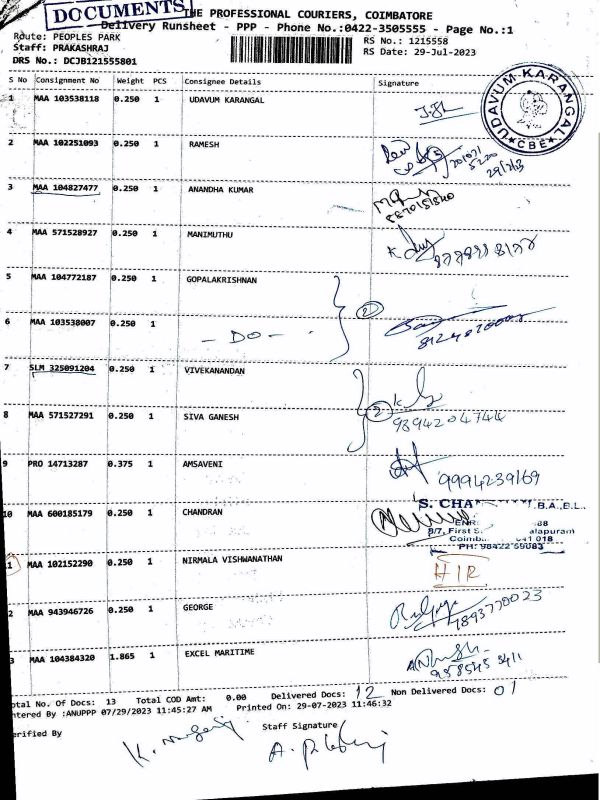 DOCUMENTS
THE PROFESSIONAL COURIERS, COIMBATORE
Delivery Runsheet - PPP - Phone No.:0422-3505555 - Page No.:1
Route: PEOPLES PARK
RS No.: 1215558
Staff: PRAKASHRAJ
RS Date: 29-Jul-2023
DRS No.: DCJB121555801
S No Consignment No Weight PCS Consignee Details Signature
1 MAA 103538118 0.250 1 UDAVUM KARANGAL
UDAVUM KARANGAL
CBE
2 MAA 102251093 0.250 1 RAMESH
3 MAA 104827477 0.250 1 ANANDHA KUMAR
4 MAA 571528927 0.250 1 MANIMUTHU
5 MAA 104772187 0.250 1 GOPALAKRISHNAN
6 MAA 103538007 0.250 1 - DO - 2
7 SLM 325091204 0.250 1 VIVEKANANDAN
8 MAA 571527291 0.250 1 SIVA GANESH 2
9894204744
9 PRO 14713287 0.375 1 AMSAVENI
9994239169
10 MAA 600185179 0.250 1 CHANDRAN
S. CHA B.A.,B.L.,
8/7, First
Coimb 641 018
PH: 98422 59083
11 MAA 102152290 0.250 1 NIRMALA VISHWANATHAN
2 MAA 943946726 0.250 1 GEORGE
3 MAA 104384320 1.865 1 EXCEL MARITIME
otal No. Of Docs: 13 Total COD Amt: 0.00 Delivered Docs: 12 Non Delivered Docs: 01
ntered By :ANUPPP 07/29/2023 11:45:27 AM Printed On: 29-07-2023 11:46:32
erified By Staff Signature